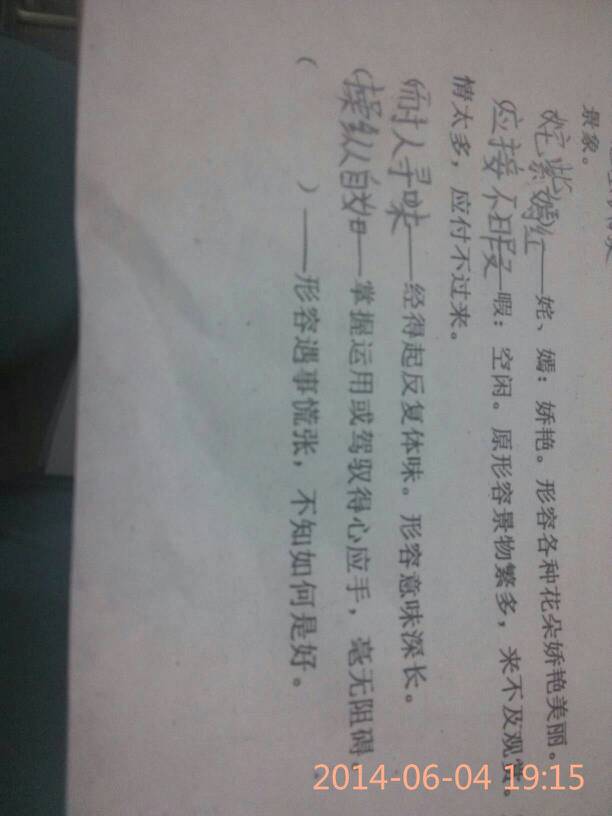 景象。
(姹紫嫣红——姹、嫣：娇艳。形容各种花朵娇艳美丽。
(应接不暇——暇：空闲。原形容景物繁多，来不及观赏。
情太多，应付不过来。
(耐人寻味——经得起反复体味。形容意味深长。
(操纵自如——掌握运用或驾驭得心应手，毫无阻碍。
(　　　)——形容遇事慌张，不知如何是好。
2014-06-04 19:15